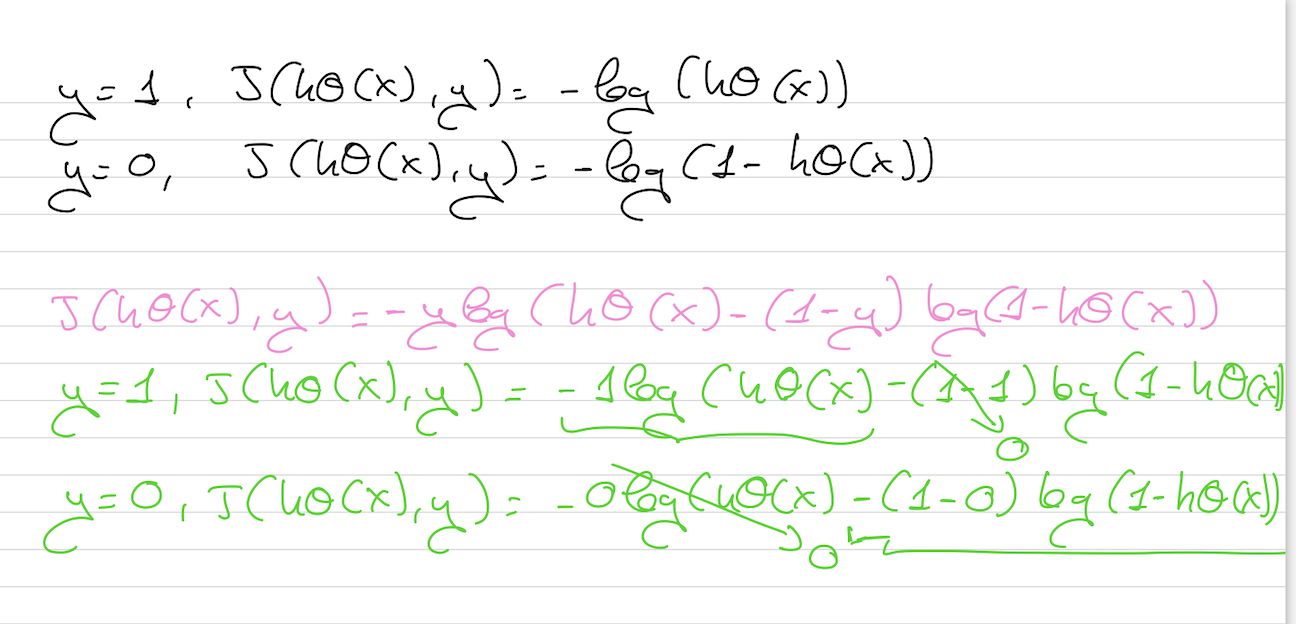 y = 1, J(hθ(x), y) = - log (hθ(x))
y = 0, J(hθ(x), y) = - log (1 - hθ(x))
J(hθ(x), y) = - y log (hθ(x) - (1 - y) log(1 - hθ(x))
y = 1, J(hθ(x), y) = - 1 log (hθ(x) - (1 - 1) log (1 - hθ(x)
0
y = 0, J(hθ(x), y) = - 0 log (hθ(x) - (1 - 0) log (1 - hθ(x))
0